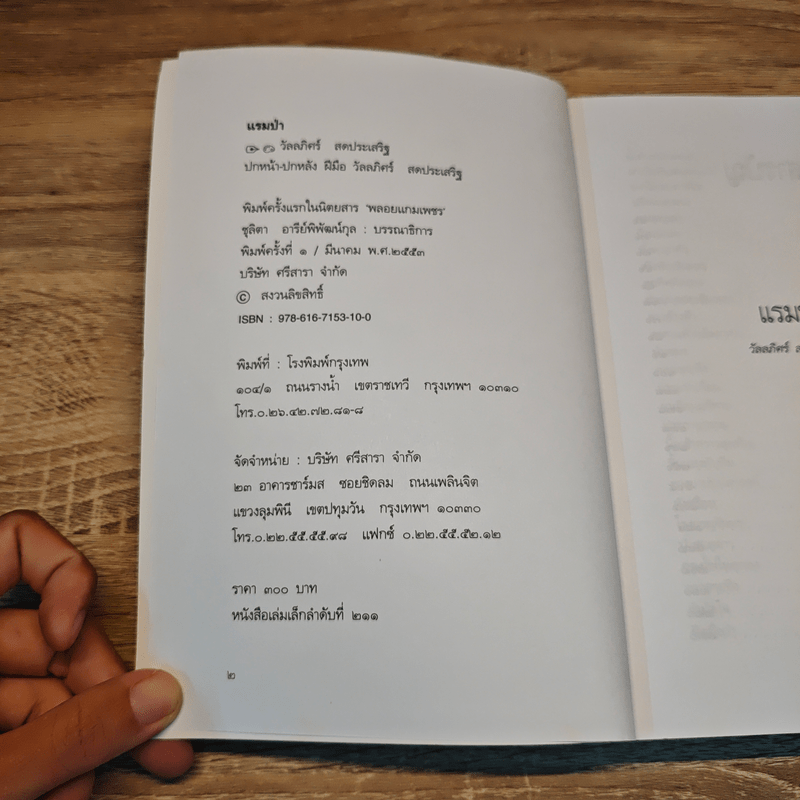 แรมป่า
วัลลภิศร์ สดประเสริฐ
ปกหน้า-ปกหลัง ฝีมือ วัลลภิศร์ สดประเสริฐ
พิมพ์ครั้งแรกในนิตยสาร 'พลอยแกมเพชร'
ชุลิตา อารีย์พิพัฒน์กุล : บรรณาธิการ
พิมพ์ครั้งที่ ๑ / มีนาคม พ.ศ.๒๕๕๓
บริษัท ศรีสารา จำกัด
© สงวนลิขสิทธิ์
ISBN : 978-616-7153-10-0
พิมพ์ที่ : โรงพิมพ์กรุงเทพ
๑๐๔/๑ ถนนรางน้ำ เขตราชเทวี กรุงเทพฯ ๑๐๓๑๐
โทร.๐.๒๖.๔๒.๗๒.๘๑-๘
จัดจำหน่าย : บริษัท ศรีสารา จำกัด
๒๓ อาคารชาร์มส ซอยชิดลม ถนนเพลินจิต
แขวงลุมพินี เขตปทุมวัน กรุงเทพฯ ๑๐๓๓๐
โทร.๐.๒๒.๕๕.๕๕.๙๘ แฟกซ์ ๐.๒๒.๕๕.๕๒.๑๒
ราคา ๓๐๐ บาท
หนังสือเล่มเล็กลำดับที่ ๒๑๑
๒
แรม
วัลลภิศร์